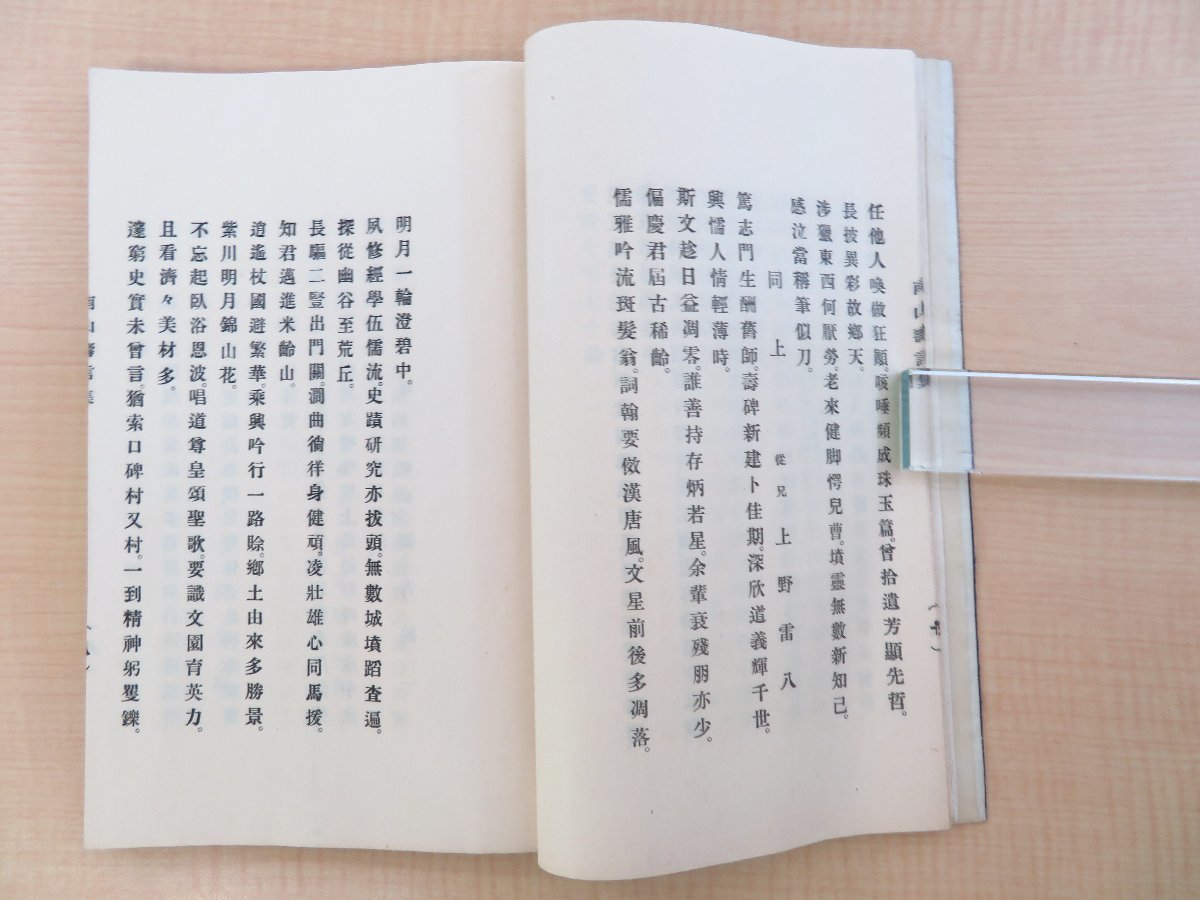 任他人喚做狂顛。咳唾頻成珠玉篇。曾拾遺芳顯先哲。
長披異彩故鄉天。
涉獵東西何厭勞。老來健脚愕兒曹。墳靈無數新知己。
感泣當稱筆似刀。
同上 從兄 上野雷八
篤志門生酬舊師。壽碑新建卜佳期。深欣道義輝千世。
興懦人情輕薄時。
斯文趁日益凋零。誰善持存炳若星。余輩衰殘朋亦少。
偏慶君屆古稀齡。
儒雅吟流斑髮翁。詞翰要傚漢唐風。文星前後多凋落。
明月一輪澄碧中。
夙修經學伍儒流。史蹟研究亦拔頭。無數城墳蹈査遍。
探從幽谷至荒丘。
長驅二豎出門關。澗曲徜徉身健頑。凌壯雄心同馬援。
知君邁進米齡山。
逍遙杖國避繁華。乘興吟行一路賒。鄉土由來多勝景。
紫川明月錦山花。
不忘起臥浴恩波。唱道尊皇頌聖歌。要識文園育英力。
且看濟々美材多。
邃窮史實未曾言。猶索口碑村又村。一到精神躬矍鑠。
南山壽言集